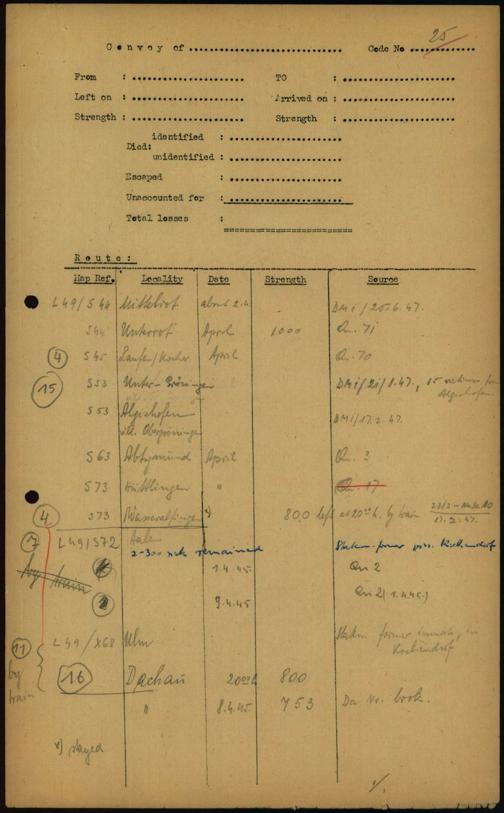 25
Convoy of .............................. Code No ............
From : ...................... TO : ......................
Left on : ...................... Arrived on : ......................
Strength : ...................... Strength : ......................
identified : ......................
Died:
unidentified : ......................
Escaped : ......................
Unaccounted for : ......................
Total losses :
Route:
Map Ref. Locality Date Strength Source
L49/S44 Mittelrot about 2.4. DMi/25.6.47.
S44 Unterrot April 1000 Qu. 71
4 S45 Laufen/Kocher April Qu. 70
15 S53 Unter-Gröningen DMi/21/1.47., 15 victims from
Algishofen
S53 Algishofen DMi/17.2.47.
Obergröningen
S63 Abtsgmünd April Qu. 3
S73 Hüttlingen " Qu. 17
4 S73 Wasseralfingen x) 800 left at 20°° h. by train
17.2.47.
7 L49/S72 Aalen Statem. former pris. Kochendorf
2-300 sick remained
by train 1.4.45 Qu 2
9.4.45 Qu 2 (1.4.45.)
11 L49/X68 Ulm Statem. former inmate, in
Kochendorf
by
train
16 Dachau 20°° h 800
" 8.4.45 753 Da nr. book.
x) stayed